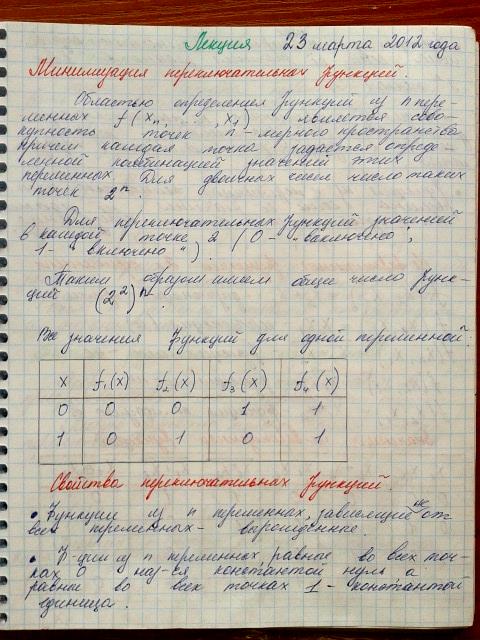 Лекция 23 марта 2012 года
Минимизация переключательных функций.
Областью определения функций из n пере-
менных f(xn, ..., x1) является сово-
купность точек n-мерного пространства
причем каждая точка задается опреде-
ленной комбинацией значений этих
переменных. Для двоичных чисел число таких
точек 2ⁿ.
Для переключательных функций значений
в каждой точке 2 (0 - "выключено",
1 - "включено").
Таким образом имеем общее число функ-
ций (2²)ⁿ.
Все значения функций для одной переменной:
x f₁(x) f₂(x) f₃(x) f₄(x)
0 0 0 1 1
1 0 1 0 1
Свойства переключательных функций.
• Функции из n переменных, зависящий не от
всех переменных - вырожденные.
• Ф-ции из n переменных равные во всех точ-
ках 0 наз-ся константой нуль а
равны во всех точках 1 - константой
единица.